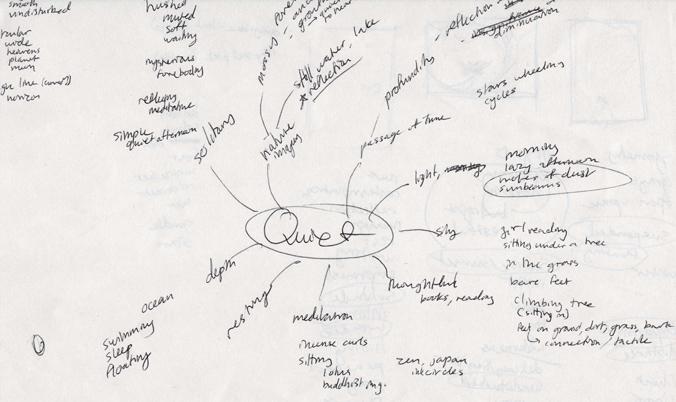 smooth
undisturbed
heavens
planet
moon
horizon
hushed
muted
soft
waiting
mysterious
foreboding
meditative
simple
quiet afternoon
solitary
nature
images
mossy
still water, lake
* reflection
profundity
, reflection
diminuation
stars wheeling
cycles
passage of time
light,
morning
lazy afternoon
motes of dust
sunbeams
Quiet
sky
girl reading
sitting under a tree
in the grass
bare feet
climbing tree
(sitting in)
feet on ground, dirt, grass, bark
→ connection / tactile
thoughtful
books, reading
depth
ocean
swimming
sleep
floating
resting
meditation
incense curls
sitting
lotus
buddhist mg.
zen, japan
ink circles